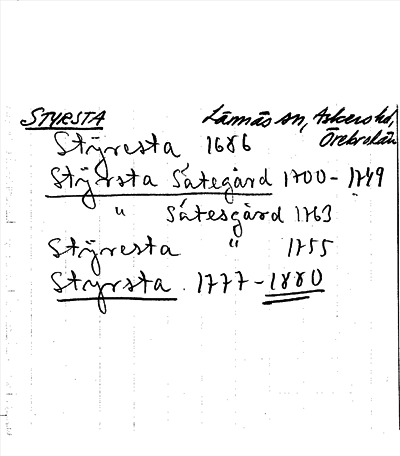 STYRSTA Lännäs sn, Askers hd,
Örebro län
Stÿresta 1686
Stÿrsta Sätegård 1700-1749
" Sätesgård 1763
Stÿresta " 1755
Stÿrsta. 1777-1880